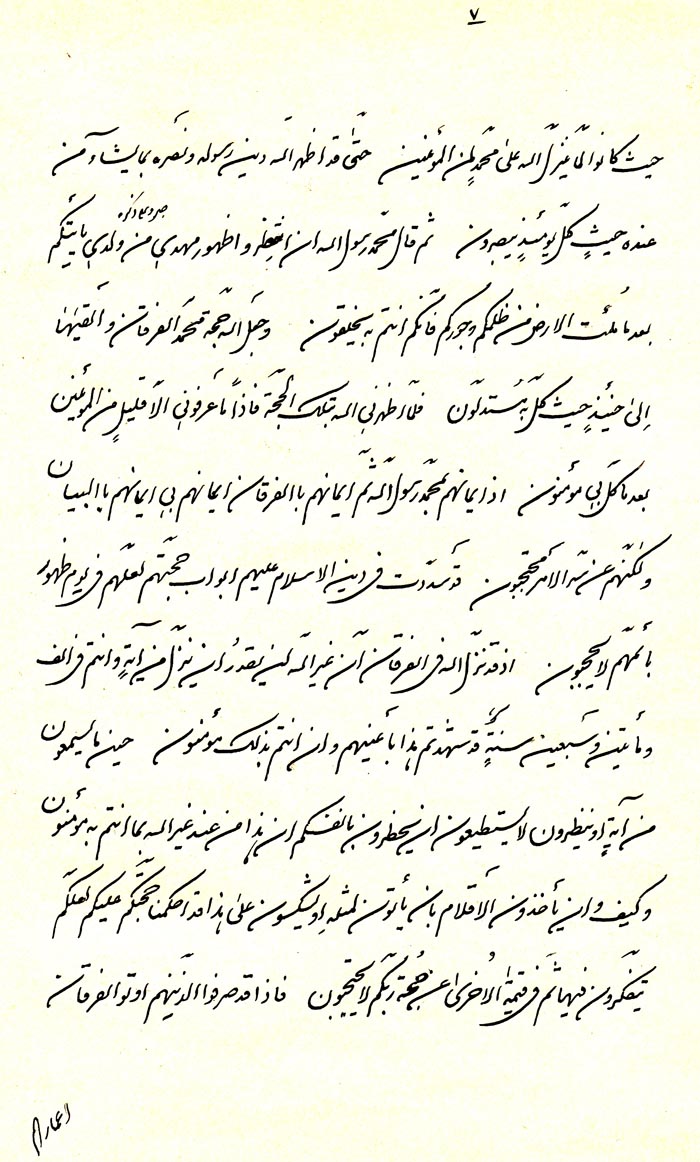 ٧
حيث كانوا لما ينزل الله على محمد لمن المؤمنين حتى قد اظهر الله دين رسوله ونصره بما يشاء من
عنده حيث كل يومئذ يبصرون ثم قال محمد رسول الله ان انتظروا ظهور مهدي من ولدي يأتينكم
بعد ما ملئت الارض من ظلمكم وجوركم فانكم انتم به تخلقون وجعل الله حجة محمد الفرقان وابقيها
الى حينئذ حيث كل به يستدلون فلما اظهرني الله بتلك الحجة فاذا ما عرفوني الا قليل من المؤمنين
بعد ما كل بي مؤمنون اذ ايمانهم بمحمد رسول الله ثم ايمانهم باالفرقان ايمانهم بي ايمانهم باالبيان
ولكنهم عن سر الامر محتجبون قد سددت في دين الاسلام عليهم ابواب حجتهم لعلهم في يوم ظهور
بائمتهم لا يحتجبون اذ قد نزل الله في الفرقان ان غير الله لن يقدر ان ينزل من آية وانتم في الف
ومأتين وسبعين سنة قد شهدتم هذا بأعينهم وان انتم بذلك مؤمنون حين ما يسمعون
من آية او ينظرون لا يستطيعون ان يخطرون بانفسكم ان هذا من عند غير الله بما انتم به مؤمنون
وكيف وان يأخذون الأقلام بان يأتون بمثله او ليشكون على هذا قد احكمنا حجتكم عليكم لعلكم
تتفكرون فيها ثم في قيمة الأخرى عن حجة ربكم لا تحتجبون فاذا قد صرفوا الذينهم اوتوا الفرقان
اعمارهم